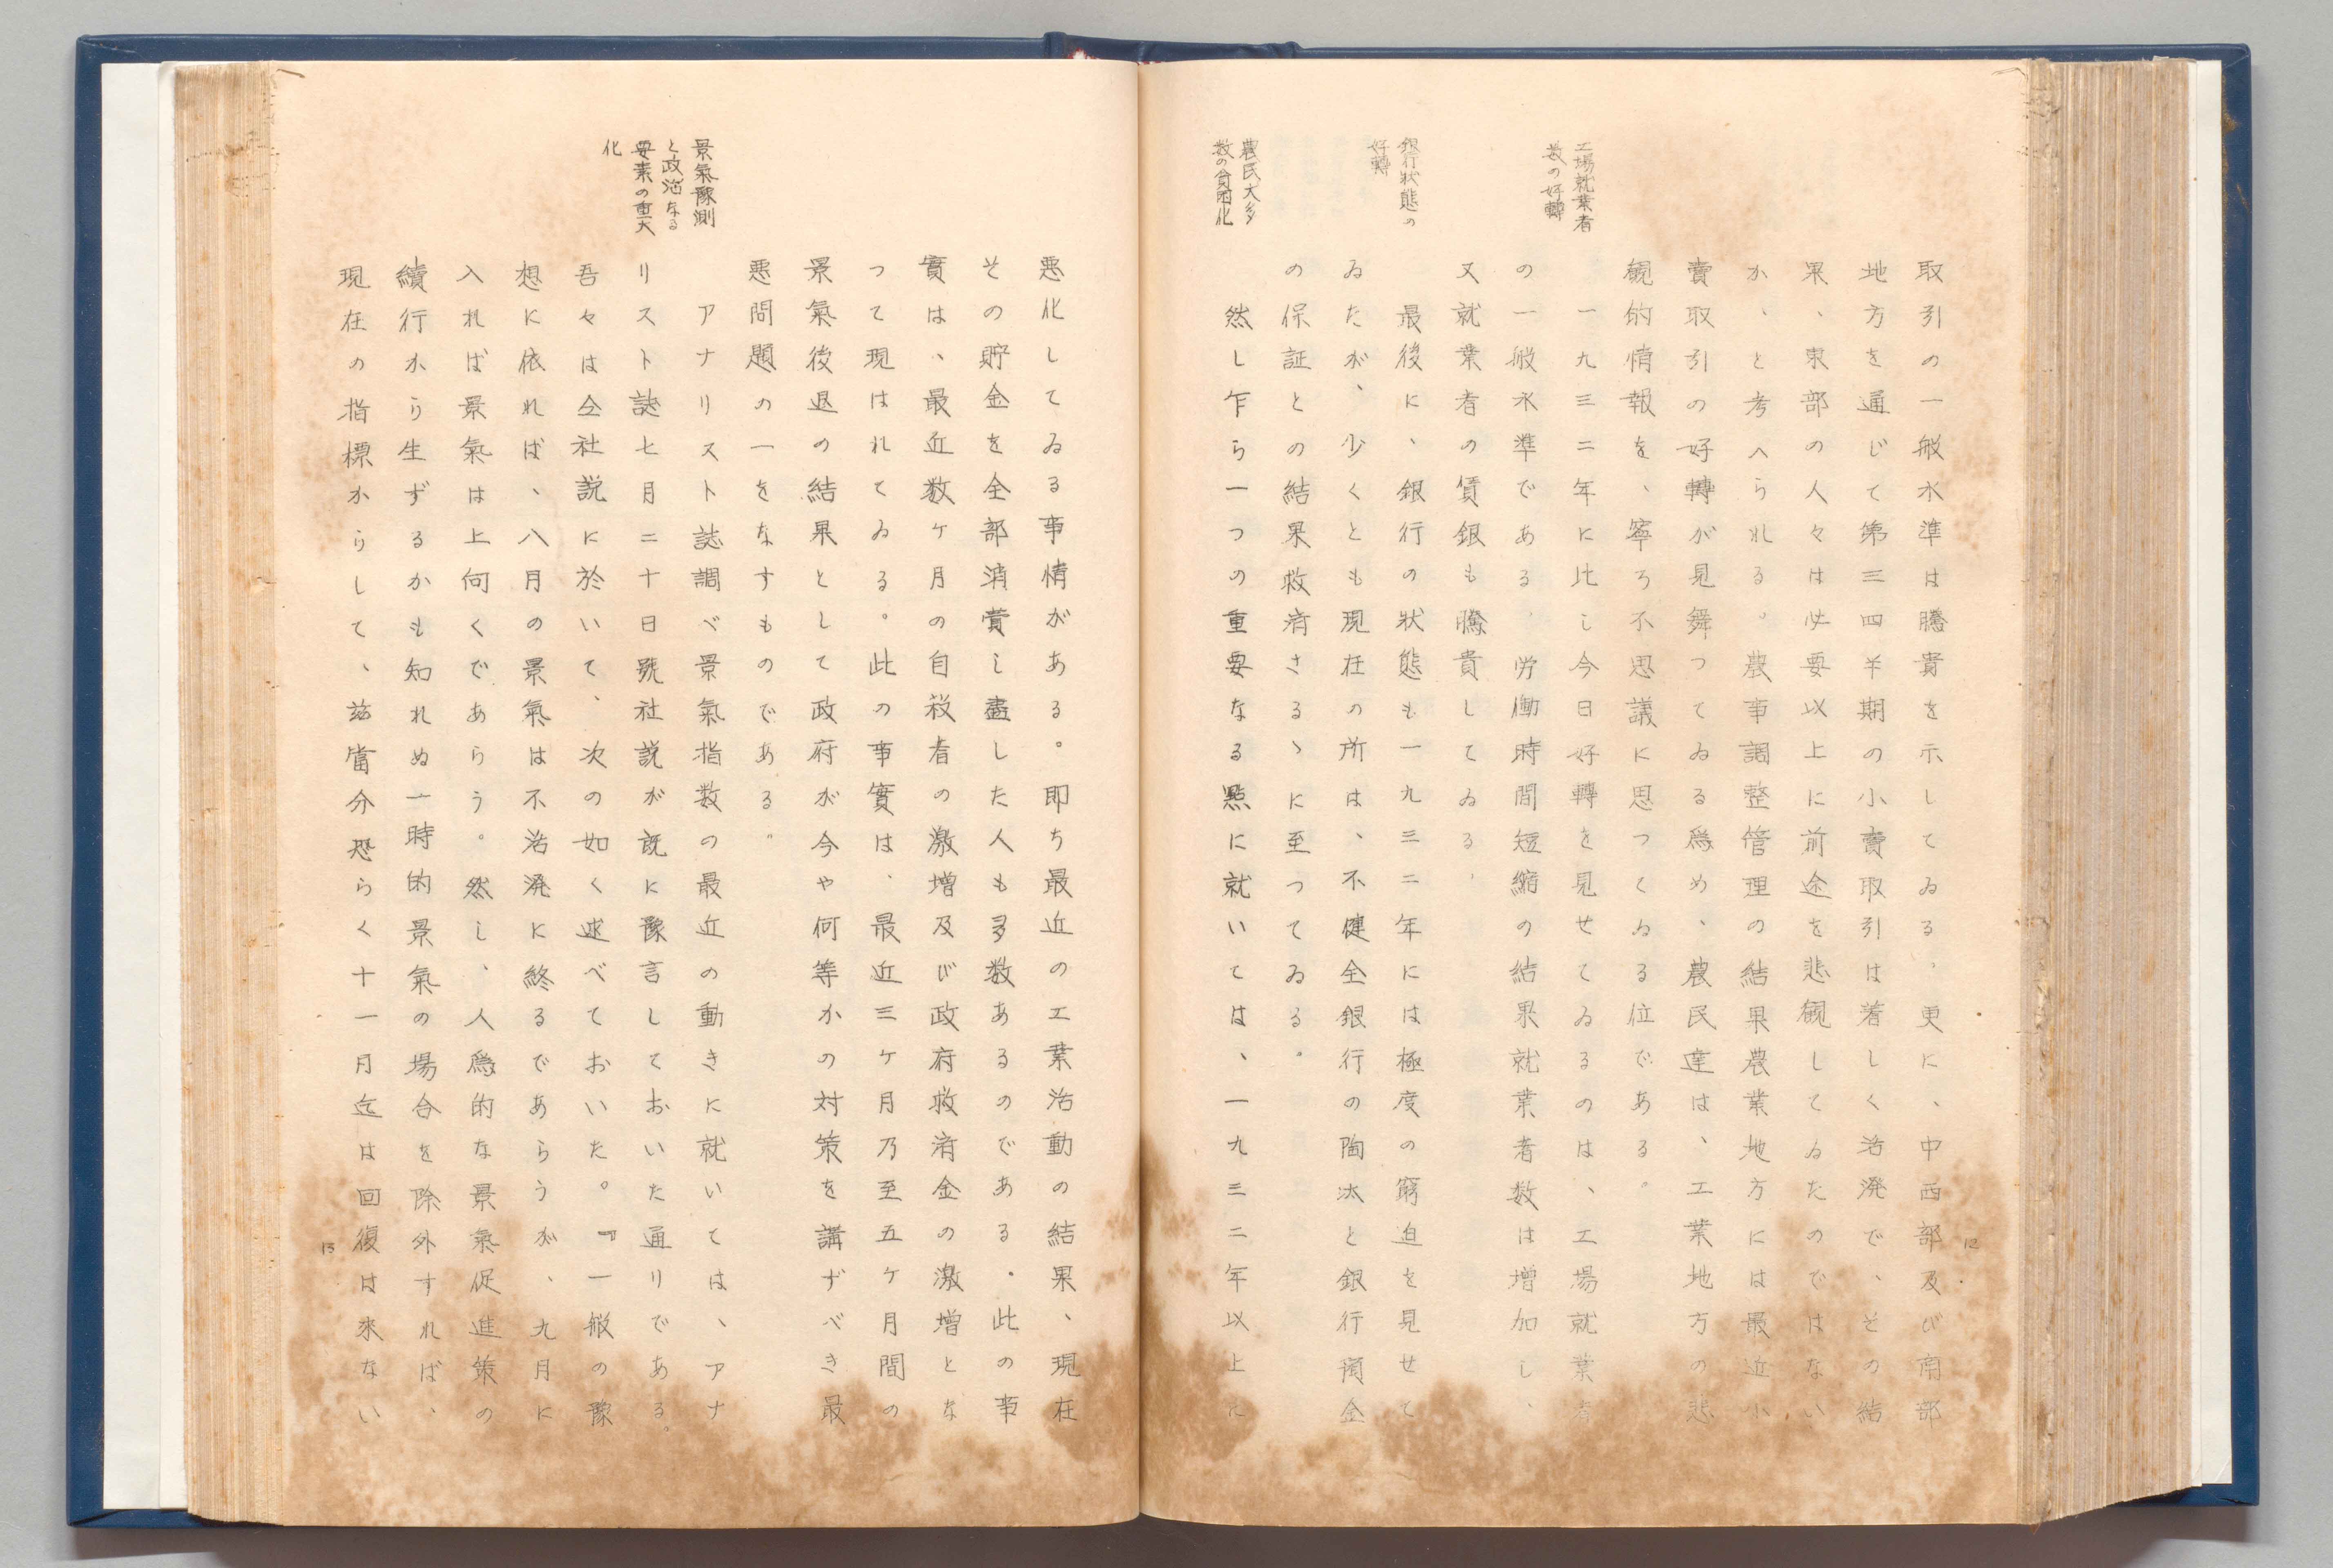 12
工場就業者
数の好轉
銀行狀態の
好轉
農民大多
数の貧困化
取引の一般水準は騰貴を示してゐる、更に、中西部及び南部
地方を通じて第三四半期の小賣取引は著しく活溌で、その結
果、東部の人々は必要以上に前途を悲観してゐたのではない
か、と考へられる。農事調整管理の結果農業地方には最近小
賣取引の好轉が見舞つてゐる為め、農民達は、工業地方の悲
観的情報を、寧ろ不思議に思つてゐる位である。
一九三二年に比し今日好轉を見せてゐるのは、工場就業者
の一般水準である、労働時間短縮の結果就業者数は増加し、
又就業者の賃銀も騰貴してゐる、
最後に、銀行の狀態も一九三二年には極度の窮迫を見せて
ゐたが、少くとも現在の所は、不健全銀行の陶汰と銀行預金
の保証との結果救済さるゝに至つてゐる。
然し乍ら一つの重要なる點に就いては、一九三二年以上に
景氣豫測
と政治なる
要素の重大
化
悪化してゐる事情がある。即ち最近の工業活動の結果、現在
その貯金を全部消費し盡した人も多数あるのである・此の事
實は、最近数ヶ月の自殺者の激増及び政府救済金の激増とな
つて現はれてゐる。此の事實は、最近三ヶ月乃至五ヶ月間の
景氣後退の結果として政府が今や何等かの対策を講ずべき最
悪問題の一をなすものである。
アナリスト誌調べ景氣指数の最近の動きに就いては、アナ
リスト誌七月二十日號社説が既に豫言しておいた通りである。
吾々は仝社説に於いて、次の如く述べておいた。『一般の豫
想に依れば、八月の景氣は不活溌に終るであらうが、九月に
入れば景氣は上向くであらう。然し、人為的な景氣促進策の
續行から生ずるかも知れぬ一時的景氣の場合を除外すれば、
現在の指標からして、玆當分恐らく十一月迄は回復は来ない
13